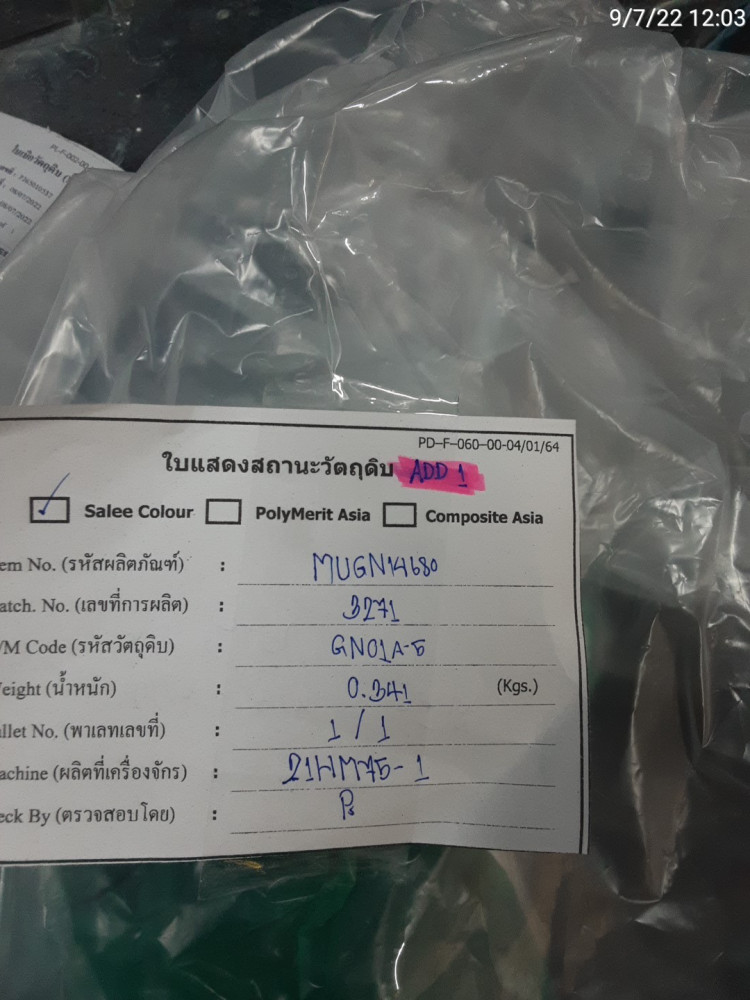 9/7/22 12:03
PL-F-002-00
PD-F-060-00-04/01/64
ใบแสดงสถานะวัตถุดิบ ADD 1
Salee Colour PolyMerit Asia Composite Asia
em No. (รหัสผลิตภัณฑ์) : MUGN14680
atch. No. (เลขที่การผลิต) : 3271
/M Code (รหัสวัตถุดิบ) : GN01A-5
eight (น้ำหนัก) : 0.341 (Kgs.)
llet No. (พาเลทเลขที่) : 1 / 1
achine (ผลิตที่เครื่องจักร) : 21HM75-1
eck By (ตรวจสอบโดย) :